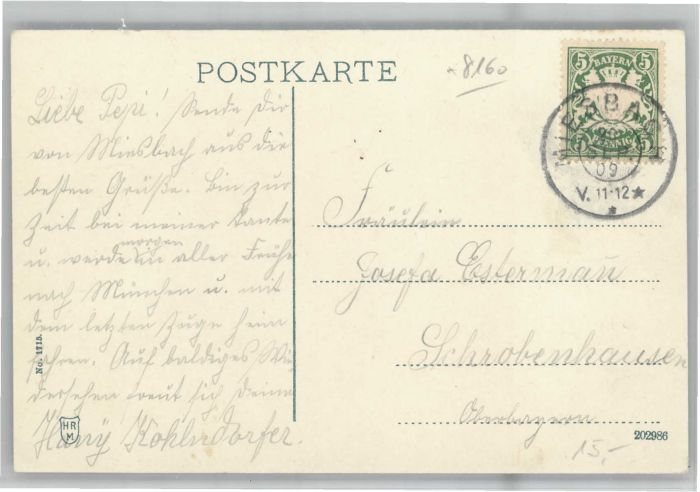 POSTKARTE
8160
Liebe Pepi! Sende Dir
von Miesbach aus die
besten Grüße. Bin zur
Zeit bei meiner Tante
morgen
u. werde in aller Frühe
nach München u. mit
dem letzten Zuge heim
fahren. Auf baldiges Wie
dersehen freut sich Deine
Hany Kohlndorfer.
5 BAYERN 5
5 PFENNIG 5
MIESBACH
09
V. 11-12
Fräulein
Josefa Estermau
Schrobenhausen
Oberbayern
No. 1715.
HR
M
202986
15,-